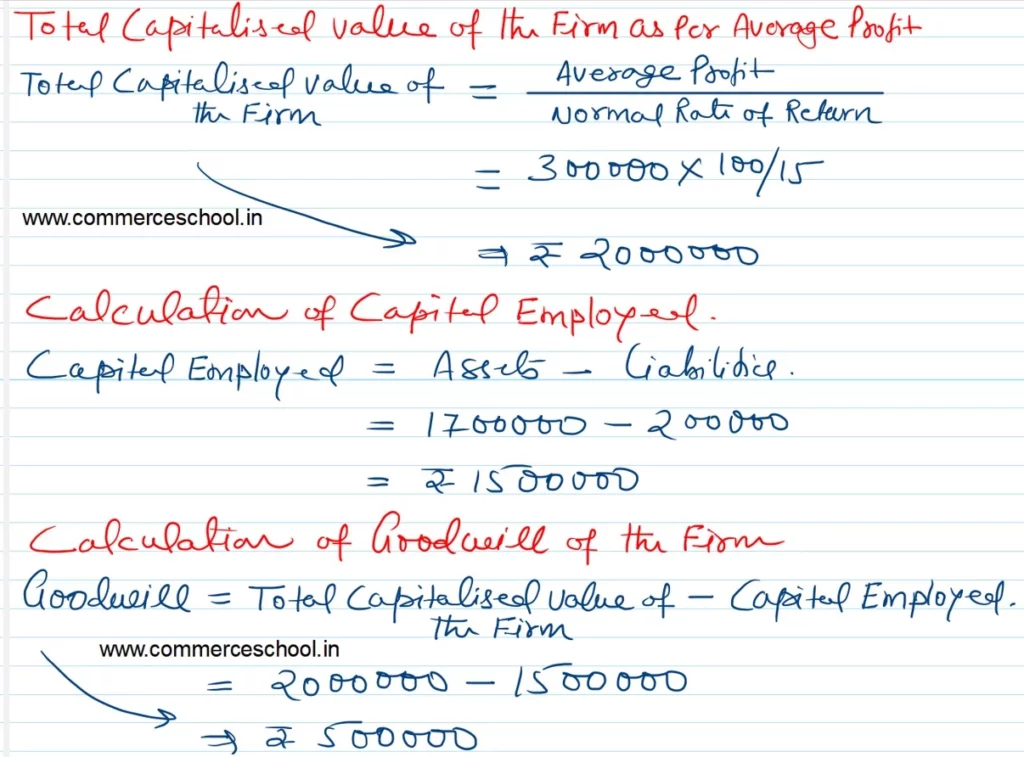 Total Capitalised value of the Firm as Per Average Profit
Total Capitalised value of the Firm = Average Profit / Normal Rate of Return
= 300000 × 100/15
www.commerceschool.in
⇒ ₹ 2000000
Calculation of Capital Employed.
Capital Employed = Assets – Liabilities.
= 1700000 – 200000
= ₹ 1500000
Calculation of Goodwill of the Firm
Goodwill = Total Capitalised value of the Firm – Capital Employed.
www.commerceschool.in
= 2000000 – 1500000
⇒ ₹ 500000